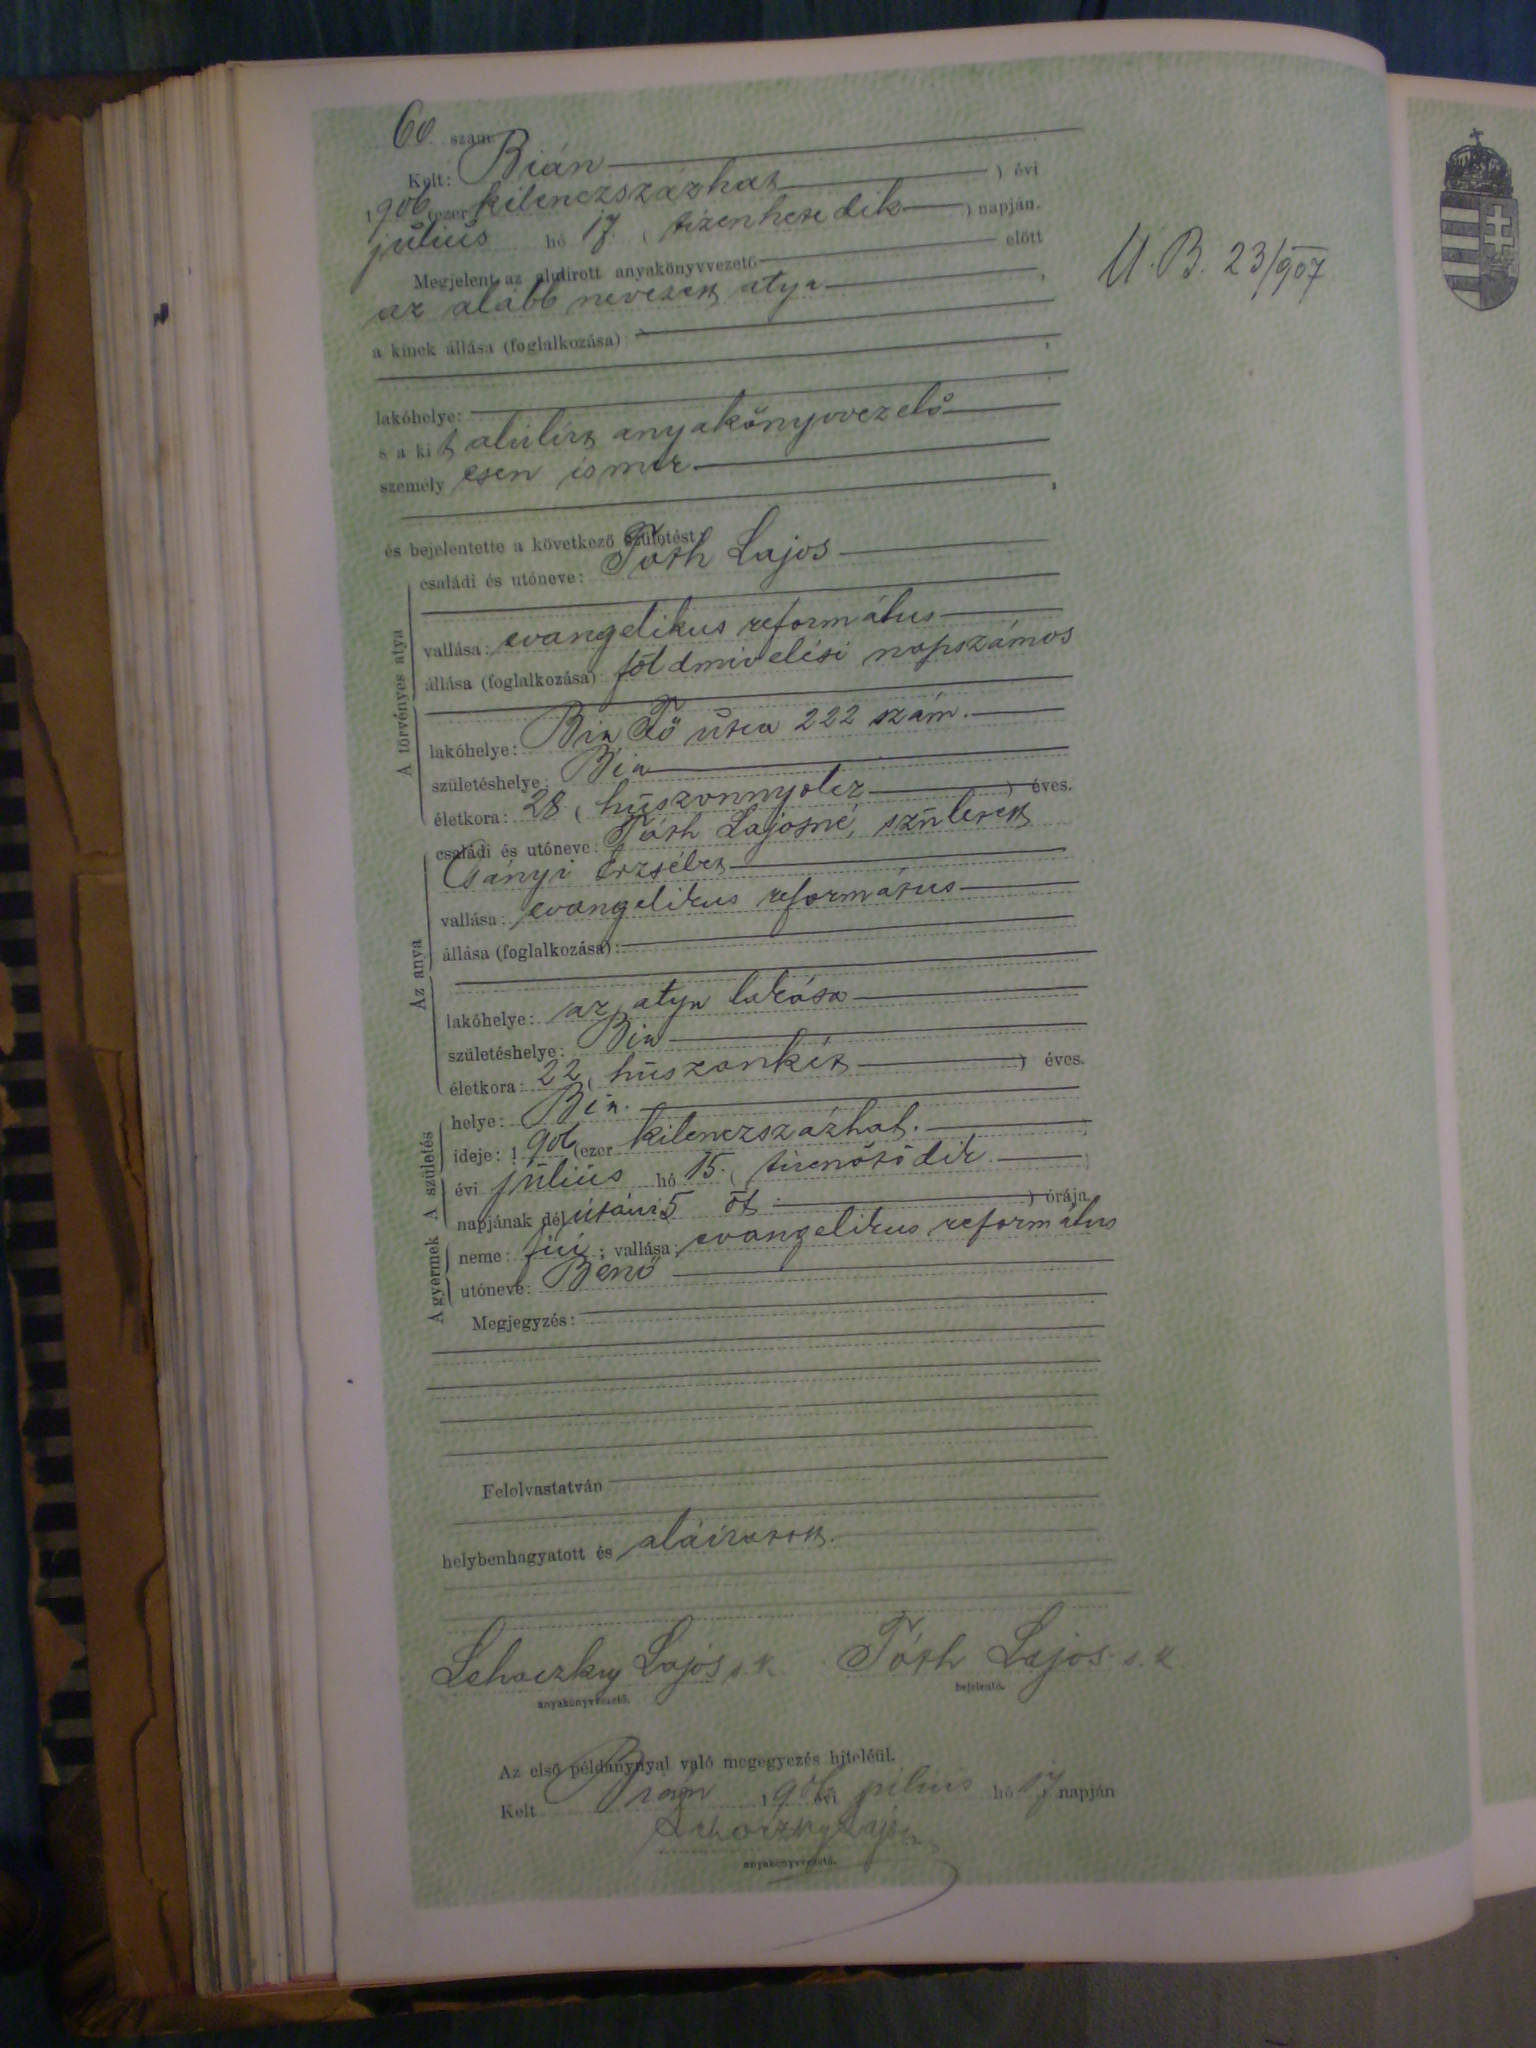 60 szám
Kelt: Bián
1906 (ezer kilenczszázhat ) évi
július hó 17. ( tizenhetedik ) napján.
Megjelent az alulírott anyakönyvvezető előtt
az alább nevezett atya ,
a kinek állása (foglalkozása): ,
lakóhelye:
s a kit alulírt anyakönyvvezető
személyesen ismer ,
és bejelentette a következő születést:
A törvényes atya
családi és utóneve: Tóth Lajos
vallása: evangelikus református
állása (foglalkozása): földmivelési napszámos
lakóhelye: Bia Fő utca 222 szám.
születéshelye: Bia
életkora: 28 ( huszonnyolcz ) éves.
Az anya
családi és utóneve: Tóth Lajosné, született
Csányi Erzsébet
vallása: evangelikus református
állása (foglalkozása):
lakóhelye: az atya lakása
születéshelye: Bia
életkora: 22 ( huszonkét ) éves.
A születés
helye: Bia.
ideje: 1906 (ezer kilenczszázhat.
évi július hó 15. ( tizenötödik
napjának délutáni 5 öt ) órája.
A gyermek
neme: fiú ; vallása: evangelikus református
utóneve: Benő
Megjegyzés:
Felolvastatván
helybenhagyatott és aláíratott.
Lehoczky Lajos s. k. Tóth Lajos s. k.
anyakönyvvezető. bejelentő.
Az első példánynyal való megegyezés hiteléül.
Kelt Bián 1906 évi július hó 17 napján
Lehoczky Lajos
anyakönyvvezető.
U. B. 23/907